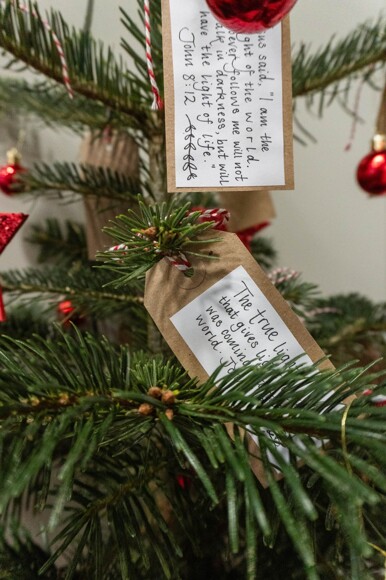 us said, "I am the
ght of the world.
ever follows me will not
alk in darkness, but will
have the light of life."
John 8:12
The true lig
that gives lig
was coming
world. J